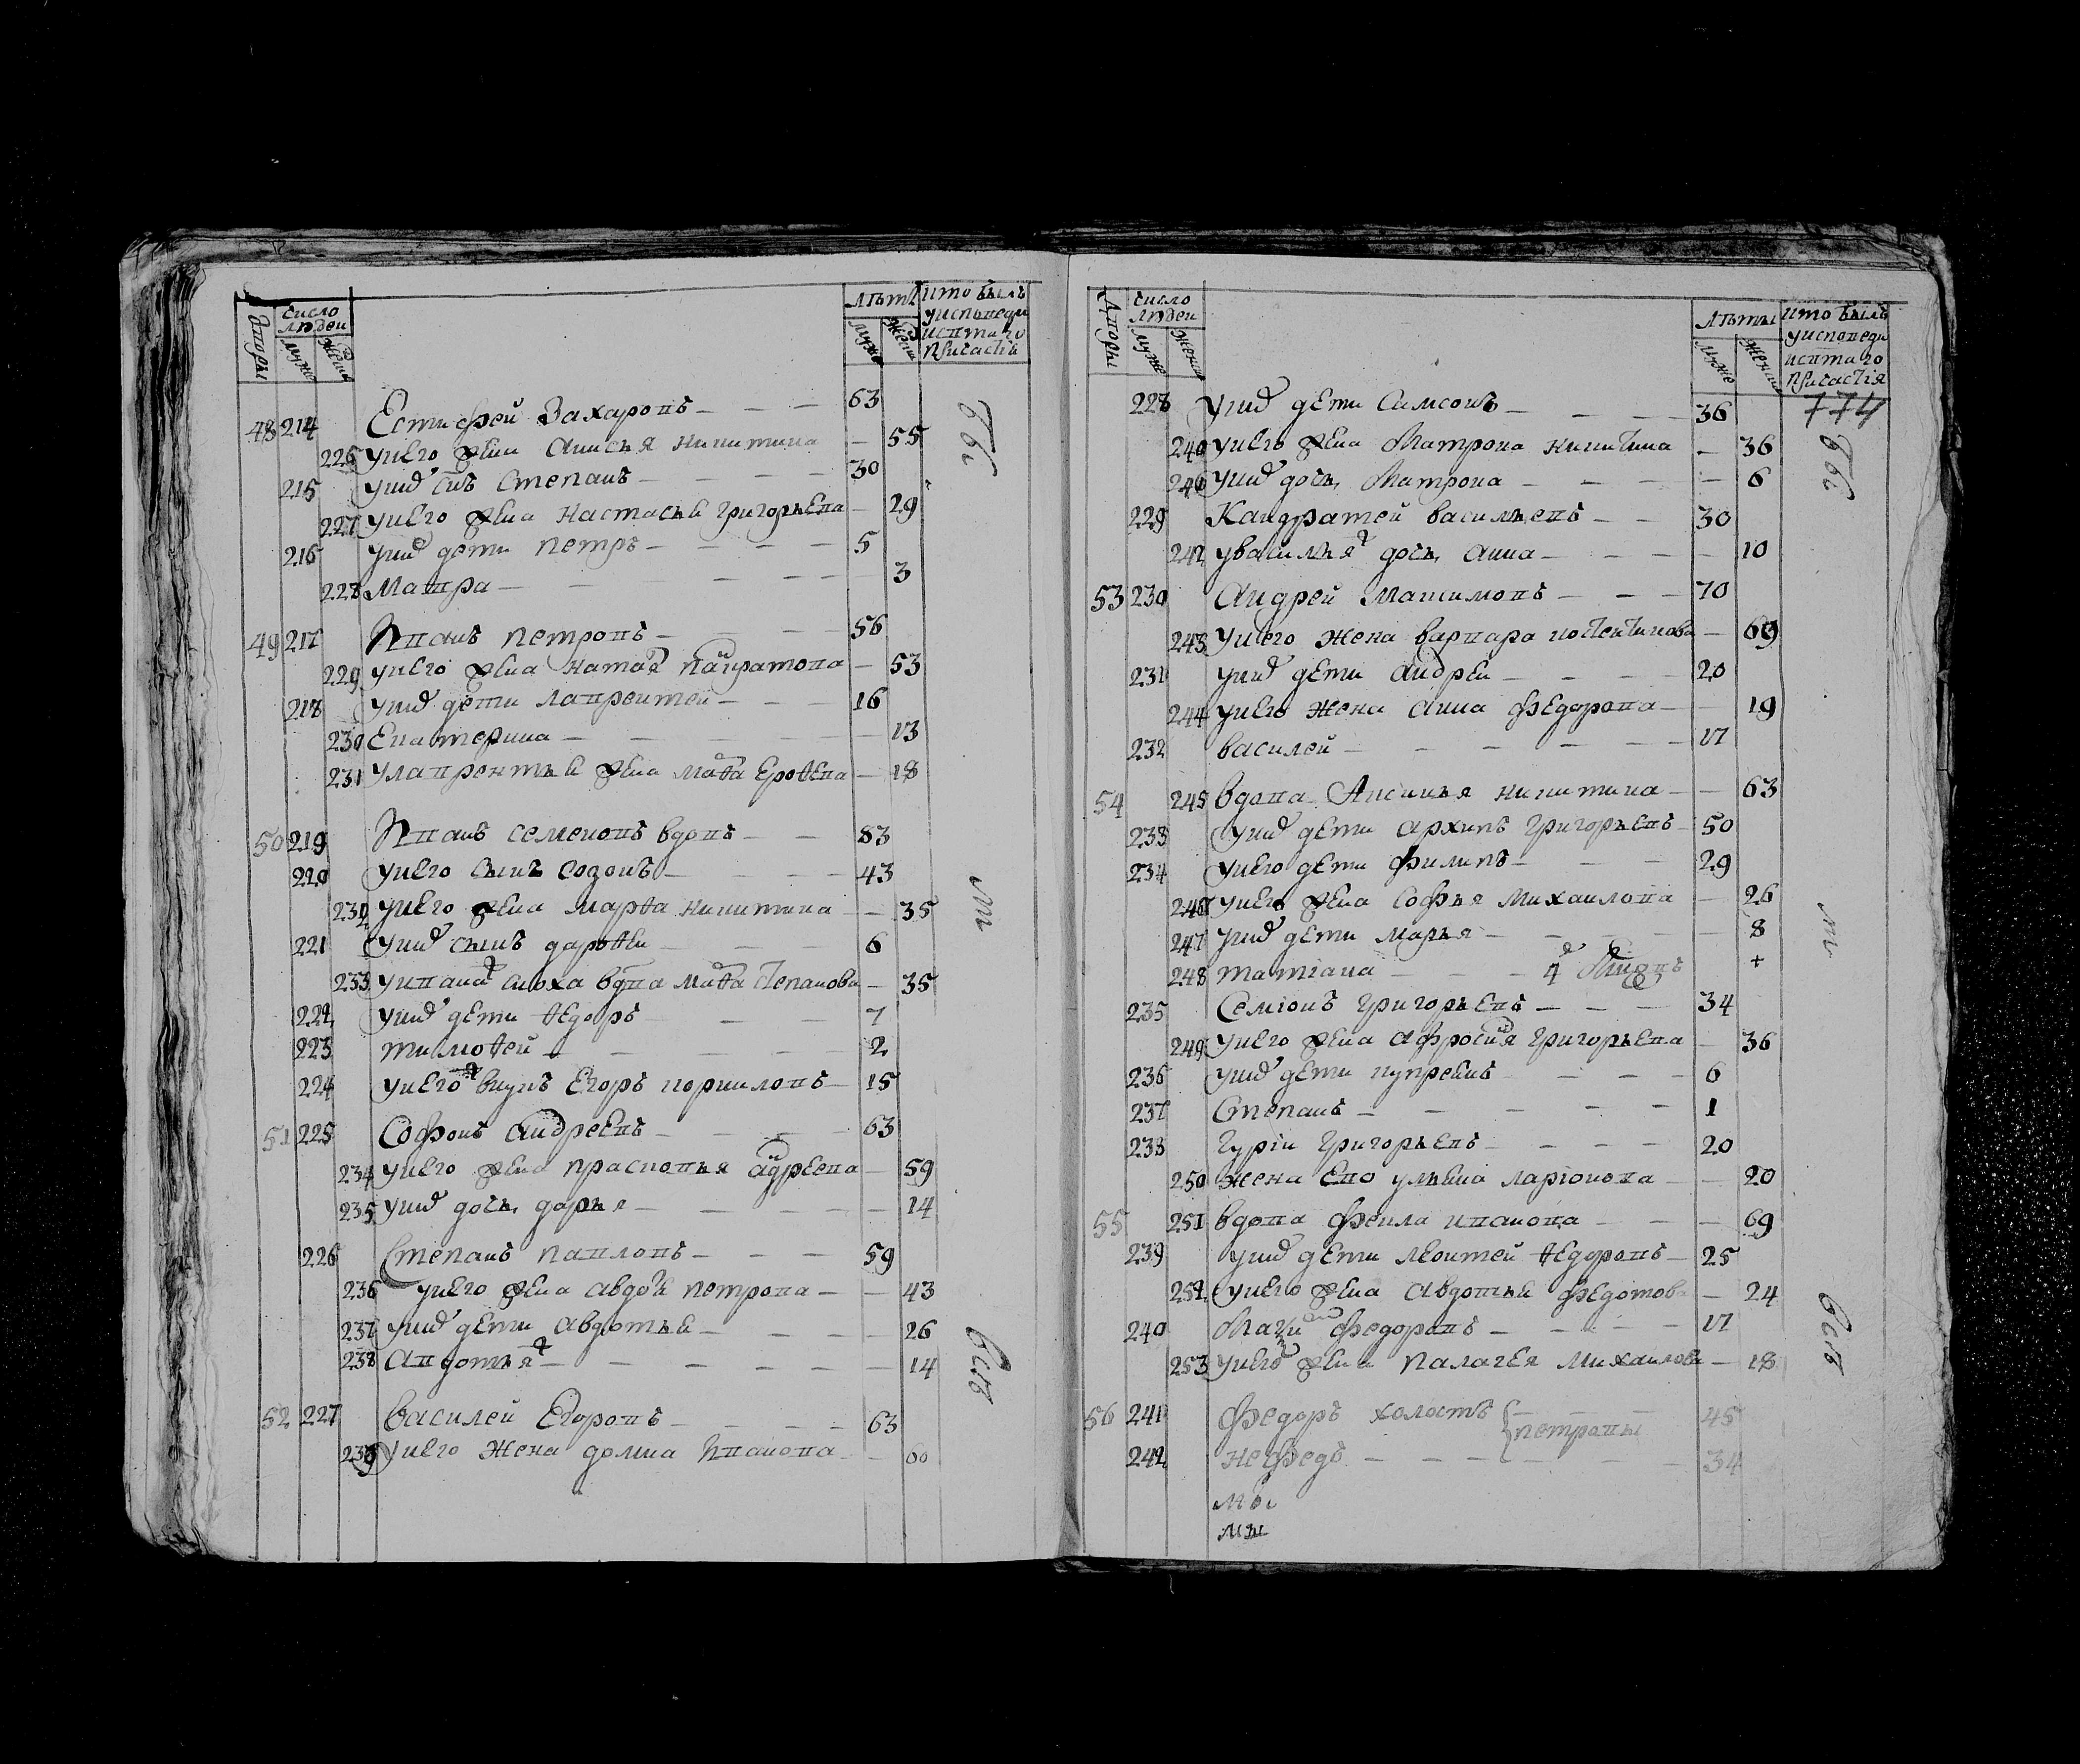 дворы
число людей
муже
женс
лѣтъ
муже
женс
кто былъ
уисповеди
исвтаго
причастія
48 214 Естифей Захаровъ — — — 63
226 унего жена анисья никитина — 55
215 унихъ снъ степанъ — — — 30
227 унего жена настасья григорьева — 29
216 унихъ дети петръ — — — — 5
228 Мавра — — — — — 3
49 217 Иванъ петровъ — — — 56
229 унего жена ната панкратова — 53
218 унихъ дети лаврентей — — — 16
230 Екатерина — — — — — 13
231 улаврентья жена маѳа ероѳева — 18
50 219 Иванъ семеновъ вдовъ — — 83
220 унего сынъ созонъ — — — — 43
232 унего жена марѳа никитина — — 35
221 унихъ сынъ дароѳеи — — — 6
233 уивана сноха вдова маѳа степанова — 35
222 унихъ дети ѳедоръ — — — 7
223 тимоѳей — — — — — 2
224 унего внукъ Егоръ корниловъ — 15
51 225 Софонъ андреевъ — — — 63
234 унего жена прасковья адреева — 59
235 унихъ дочь дарья — — — — — 14
226 Степанъ павловъ — — — 59
236 унего жена авдо петрова — — 43
237 унихъ дети авдотья — — — — 26
238 авдотья — — — — — — 14
52 227 василей Егоровъ — — — — 63
239 унего жена домна Иванова — — 60
вси
ту
были
дворы
число людей
муже
женс
лѣты
муже
женс
кто былъ
уисповеди
исвтаго
причастія
774
228 унихъ дети самсонъ — — — 36
240 унего жена матрона никитина — 36
246 унихъ дочь матрона — — — — 6
229 Кандратей васильевъ — — 30
242 увасилья дочь анна — — — — 10
53 230 андрей макимовъ — — — 70
243 унего жена варвара — 69
231 унихъ дети андреи — — — 20
244 унего жена анна федорова — — 19
232 василей — — — — — — 17
54 245 вдова Аксинья никитина — — 63
233 унихъ дети архипъ григорьевъ — 50
234 унего дети филипъ — — — 29
246 унего жена софья михаилова — 26
247 унихъ дети марья — — — — — 8
248 татиана — — — +
235 Семіонъ григорьевъ — — — 34
249 унего жена афросиня григорьева — 36
236 унихъ дети купреянъ — — — 6
237 Степанъ — — — — — — 1
238 Гуріи григорьевъ — — — — 20
250 жена Ево ульяна ларіонова — — 20
55 251 вдова фекла иванова — — — 69
239 унихъ дети леонтей ѳедоровъ — 25
252 унего жена авдотья федотова — 24
240 федоровъ — — — — 17
253 унего жена палагея михаилова — 18
56 241 федоръ холостъ { — — — 45
петровы
242 нефедъ — — — — — — 34